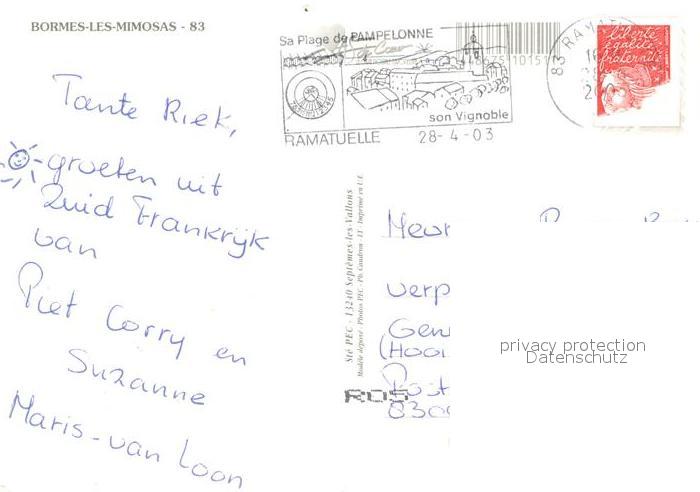 BORMES-LES-MIMOSAS - 83
Tante Riek,
groeten uit
Zuid Frankrijk
van
Piet Corry en
Suzanne
Maris-van Loon
Sa Plage de PAMPELONNE
son Vignoble
RAMATUELLE 28-4-03
83 RAMA
liberté
égalité
fraternité
Sté PEC - 13240 Septèmes-les-Vallons
Modèle déposé - Photos PEC - Imprimé en U.E.
verp
(HOOI
Post
830
ROS
privacy protection
Datenschutz